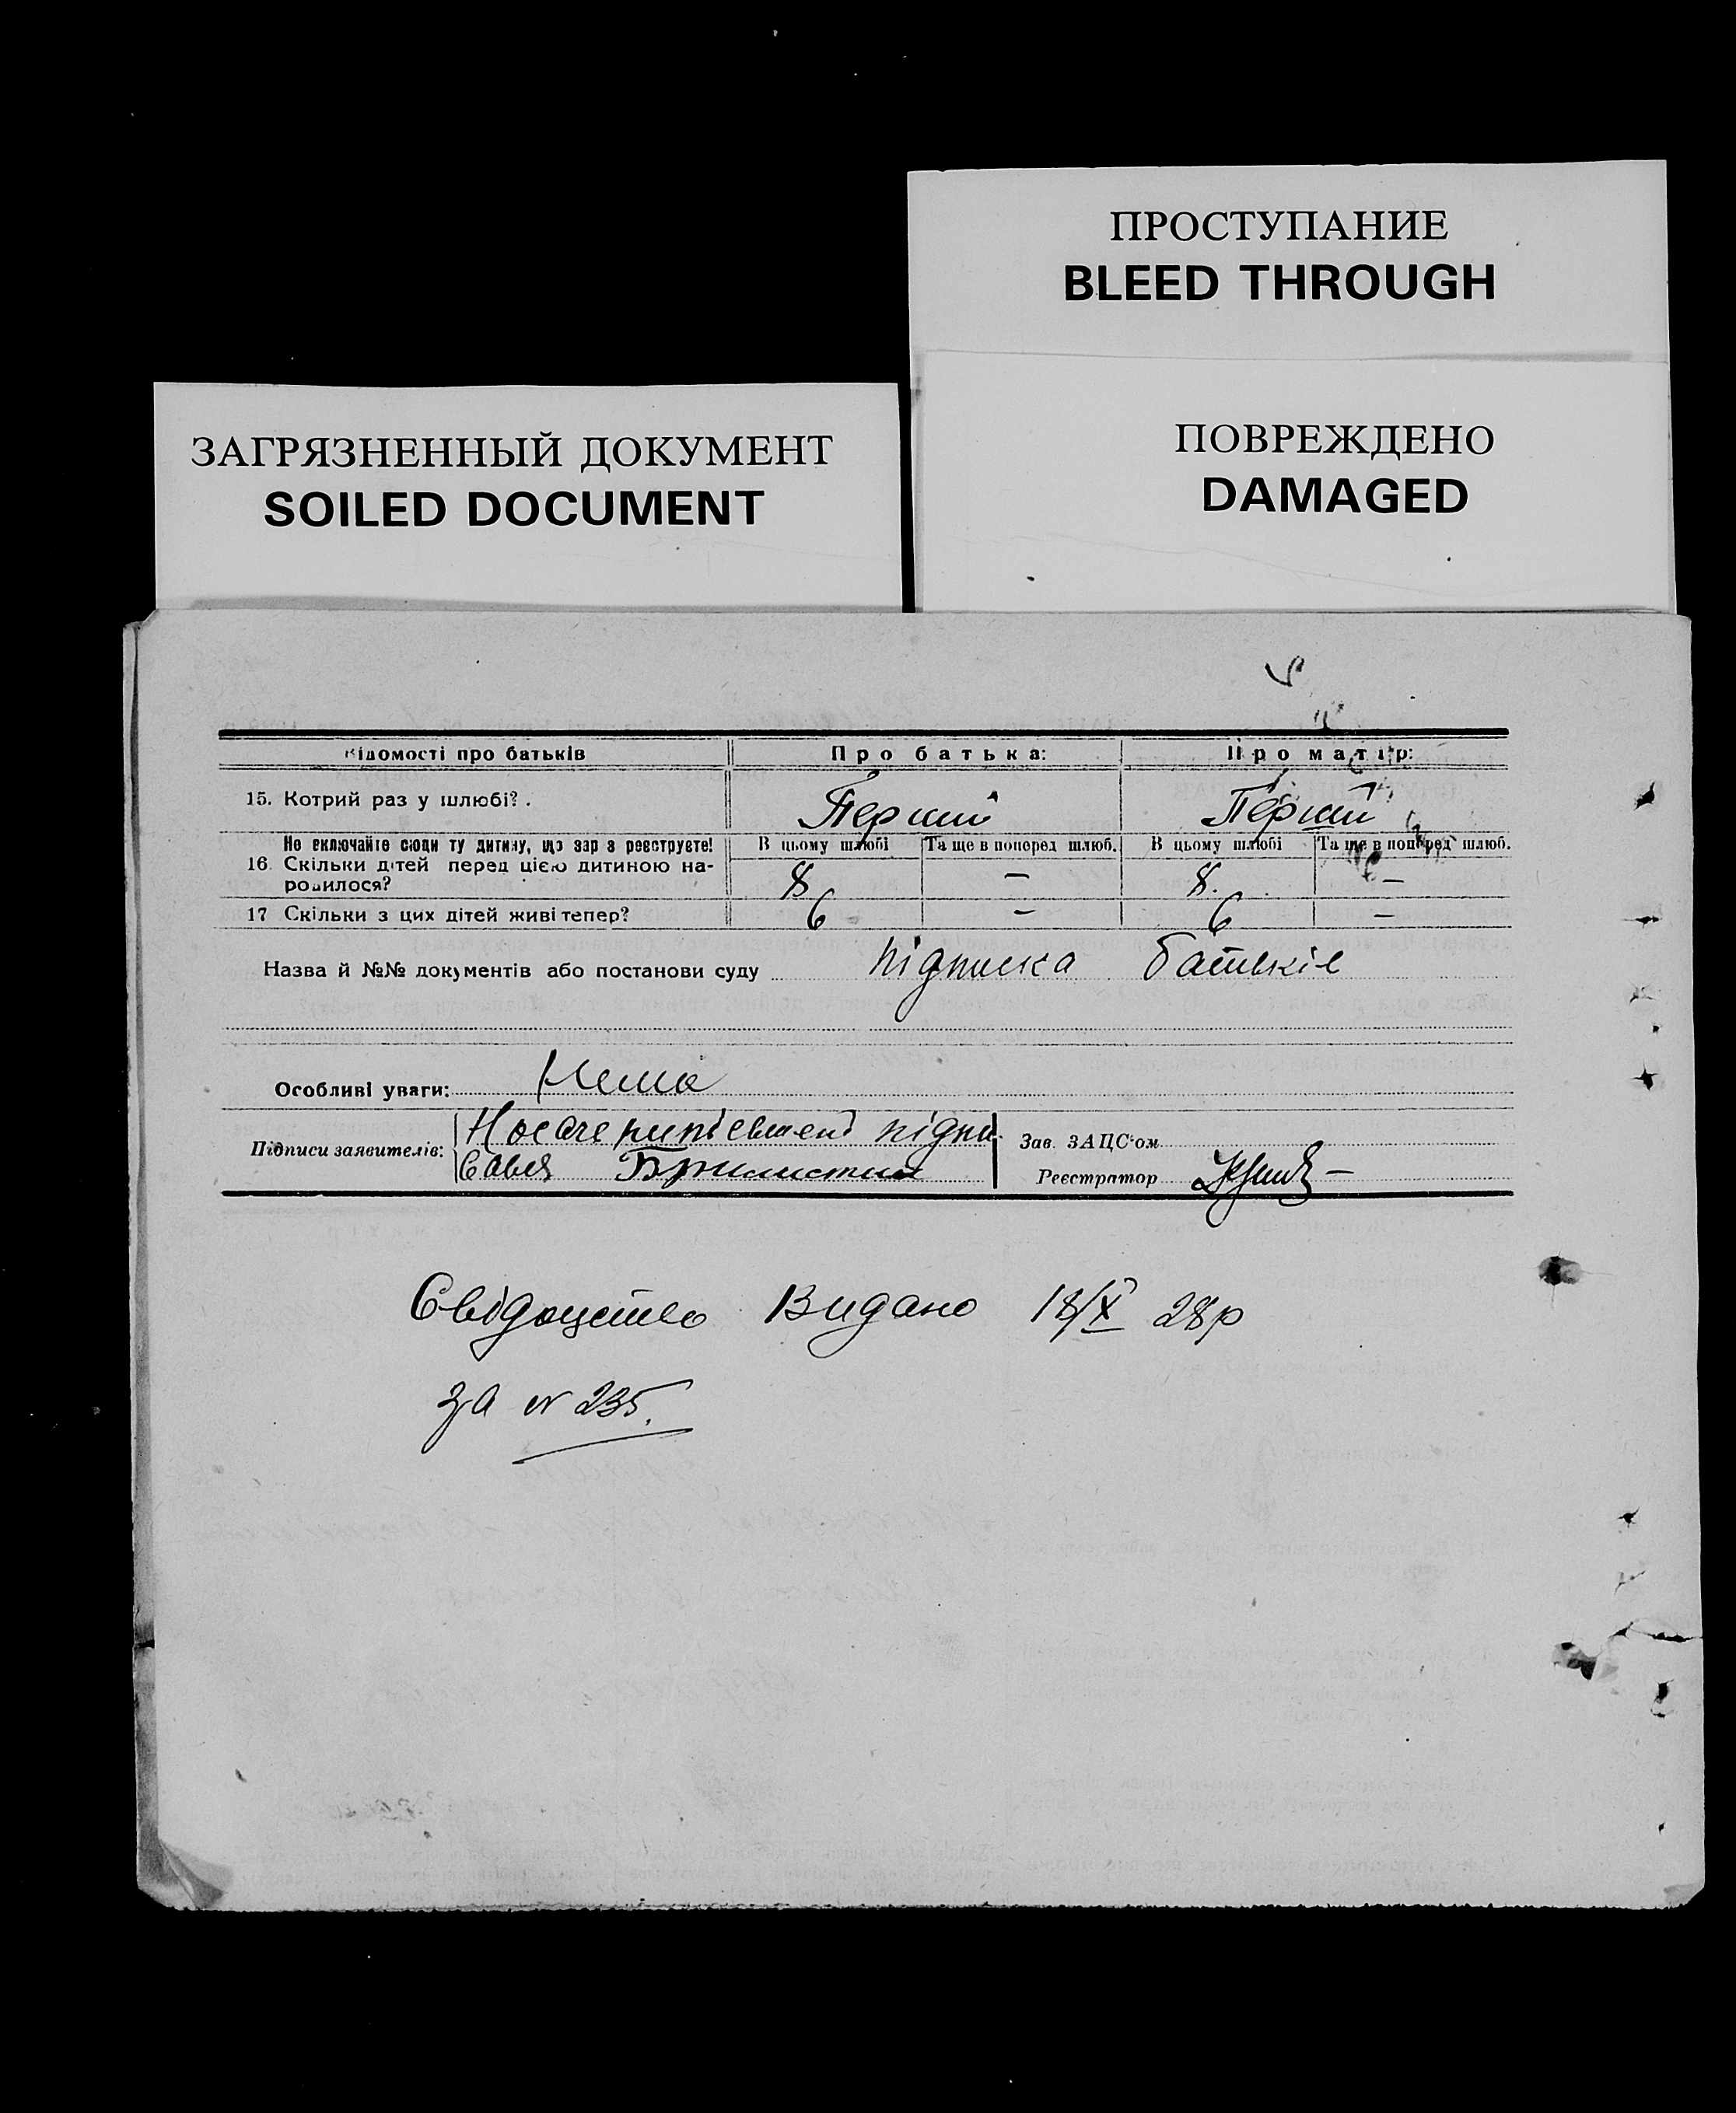 ПРОСТУПАНИЕ
BLEED THROUGH
ПОВРЕЖДЕНО
DAMAGED
ЗАГРЯЗНЕННЫЙ ДОКУМЕНТ
SOILED DOCUMENT
Відомості про батьків Про батька: Про матір:
15. Котрий раз у шлюбі? . Перший Перший
Не включайте сюди ту дитину, що зараз реєструєте! В цьому шлюбі Та ще в поперед шлюб. В цьому шлюбі Та ще в поперед шлюб.
16. Скільки дітей перед цією дитиною на-
родилося? 8 – 8. –
17 Скільки з цих дітей живі тепер? 6 – 6 –
Назва й №№ документів або постанови суду підписка батьків
Особливі уваги: Нема
Підписи заявителів: підпи Зав. ЗАЦС'ом
Реєстратор
Свідоцтво Видано 18/X 28р
за № 235.